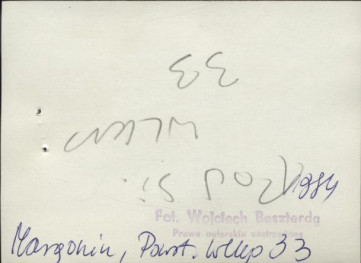 33
1984
Fot. Wojciech Beszterda
Prawa autorskie zastrzeżone
Margonin, Powst. Wlkp 33